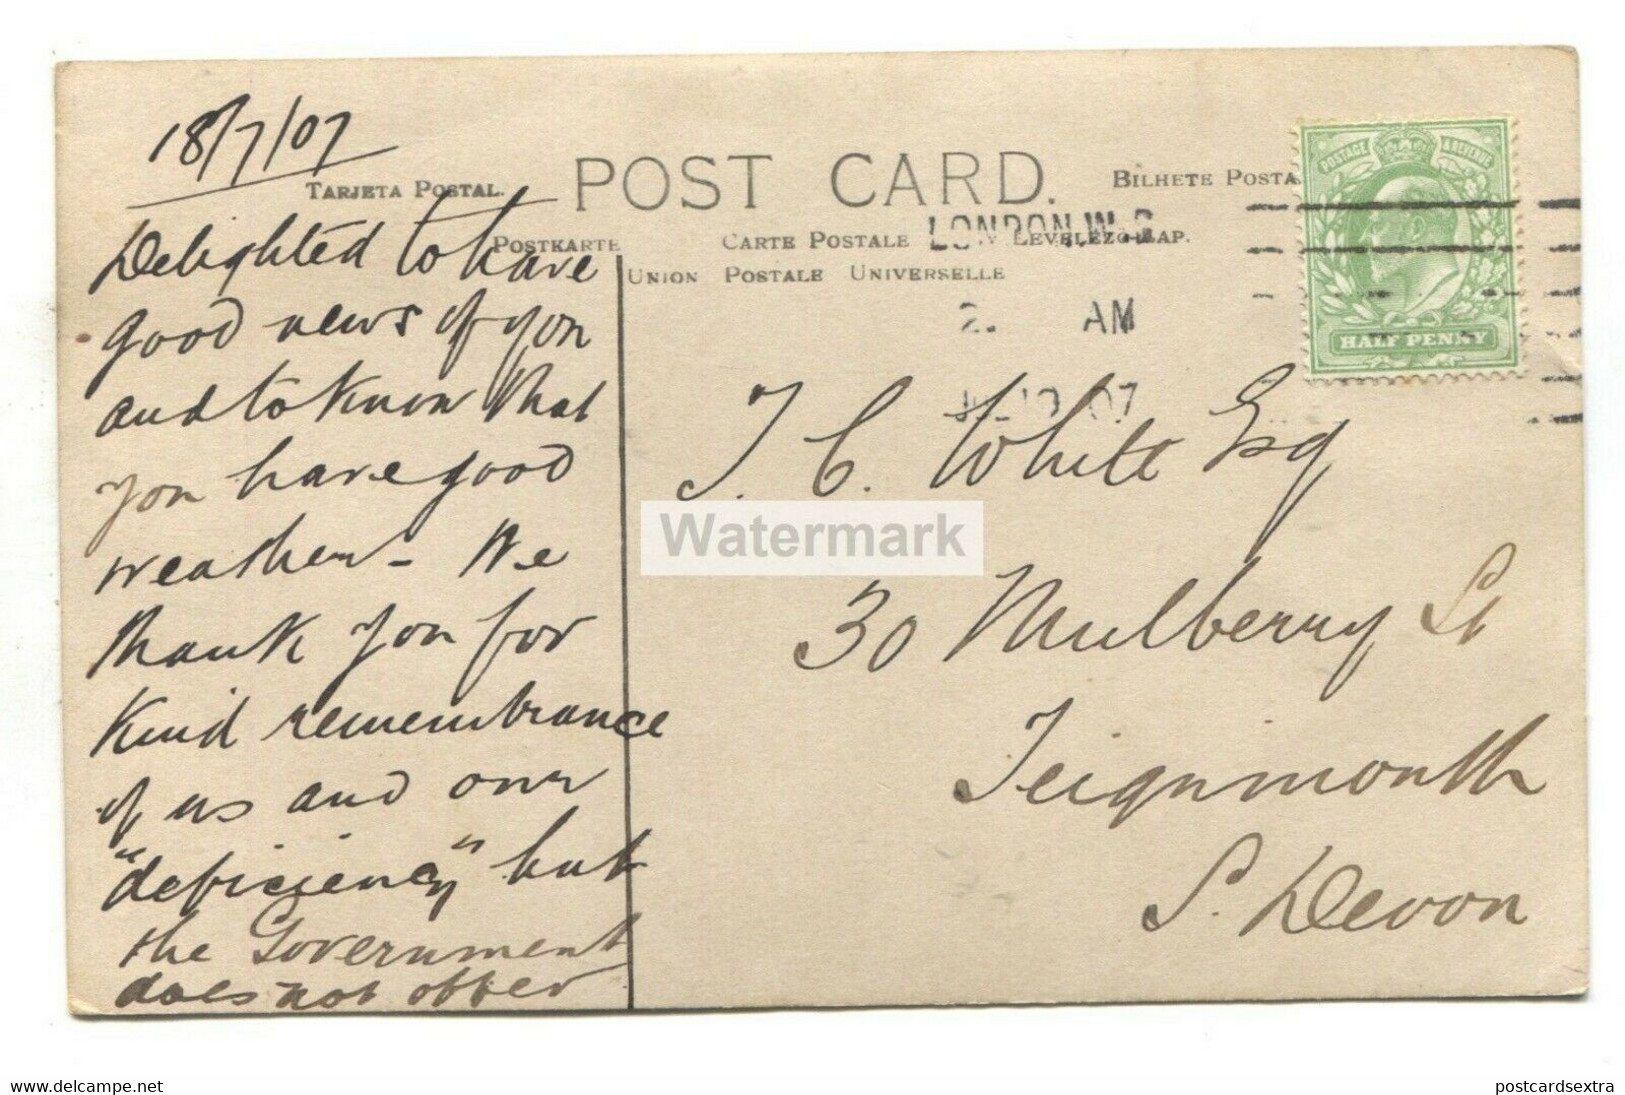 18/7/07
TARJETA POSTAL.
POST CARD.
BILHETE POSTA
POSTKARTE
CARTE POSTALE
LEVELEZŐ-LAP.
UNION POSTALE UNIVERSELLE
LONDON.W.C
2. AM
07
POSTAGE & REVENUE
HALF PENNY
Delighted to have
good news of you
and to know that
you have good
weather - We
thank you for
Kind remembrance
of us and our
"deficiency" but
the Government
does not offer
J. C. White Esq
30 Mulberry St
Teignmouth
S. Devon
Watermark
www.delcampe.net
postcardsextra